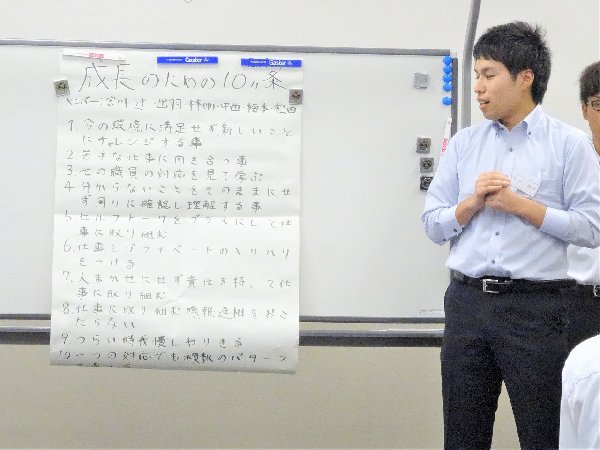 Gaster
Gaster
成長のための10ヶ条
メンバー:宮川 辻 出羽 林(゙) 中西 梅本 松田
1. 今の環境に満足せず新しいこと
にチャレンジする事
2. 苦手な仕事に向き合う事
3. 他の職員の対応を見て学ぶ
4. 分からないことをそのままにせ
ず周りに確認し理解する事
5. セルフトークをプラスにして仕
事に取り組む
6. 仕事とプライベートのメリハリ
をつける
7. 人まかせにせず責任を持って仕
事に取り組む
8. 仕事に取り組む際報連相をおこ
たらない
9. つらい時我慢しやりきる
10. 一つの対応でも複数のパターン